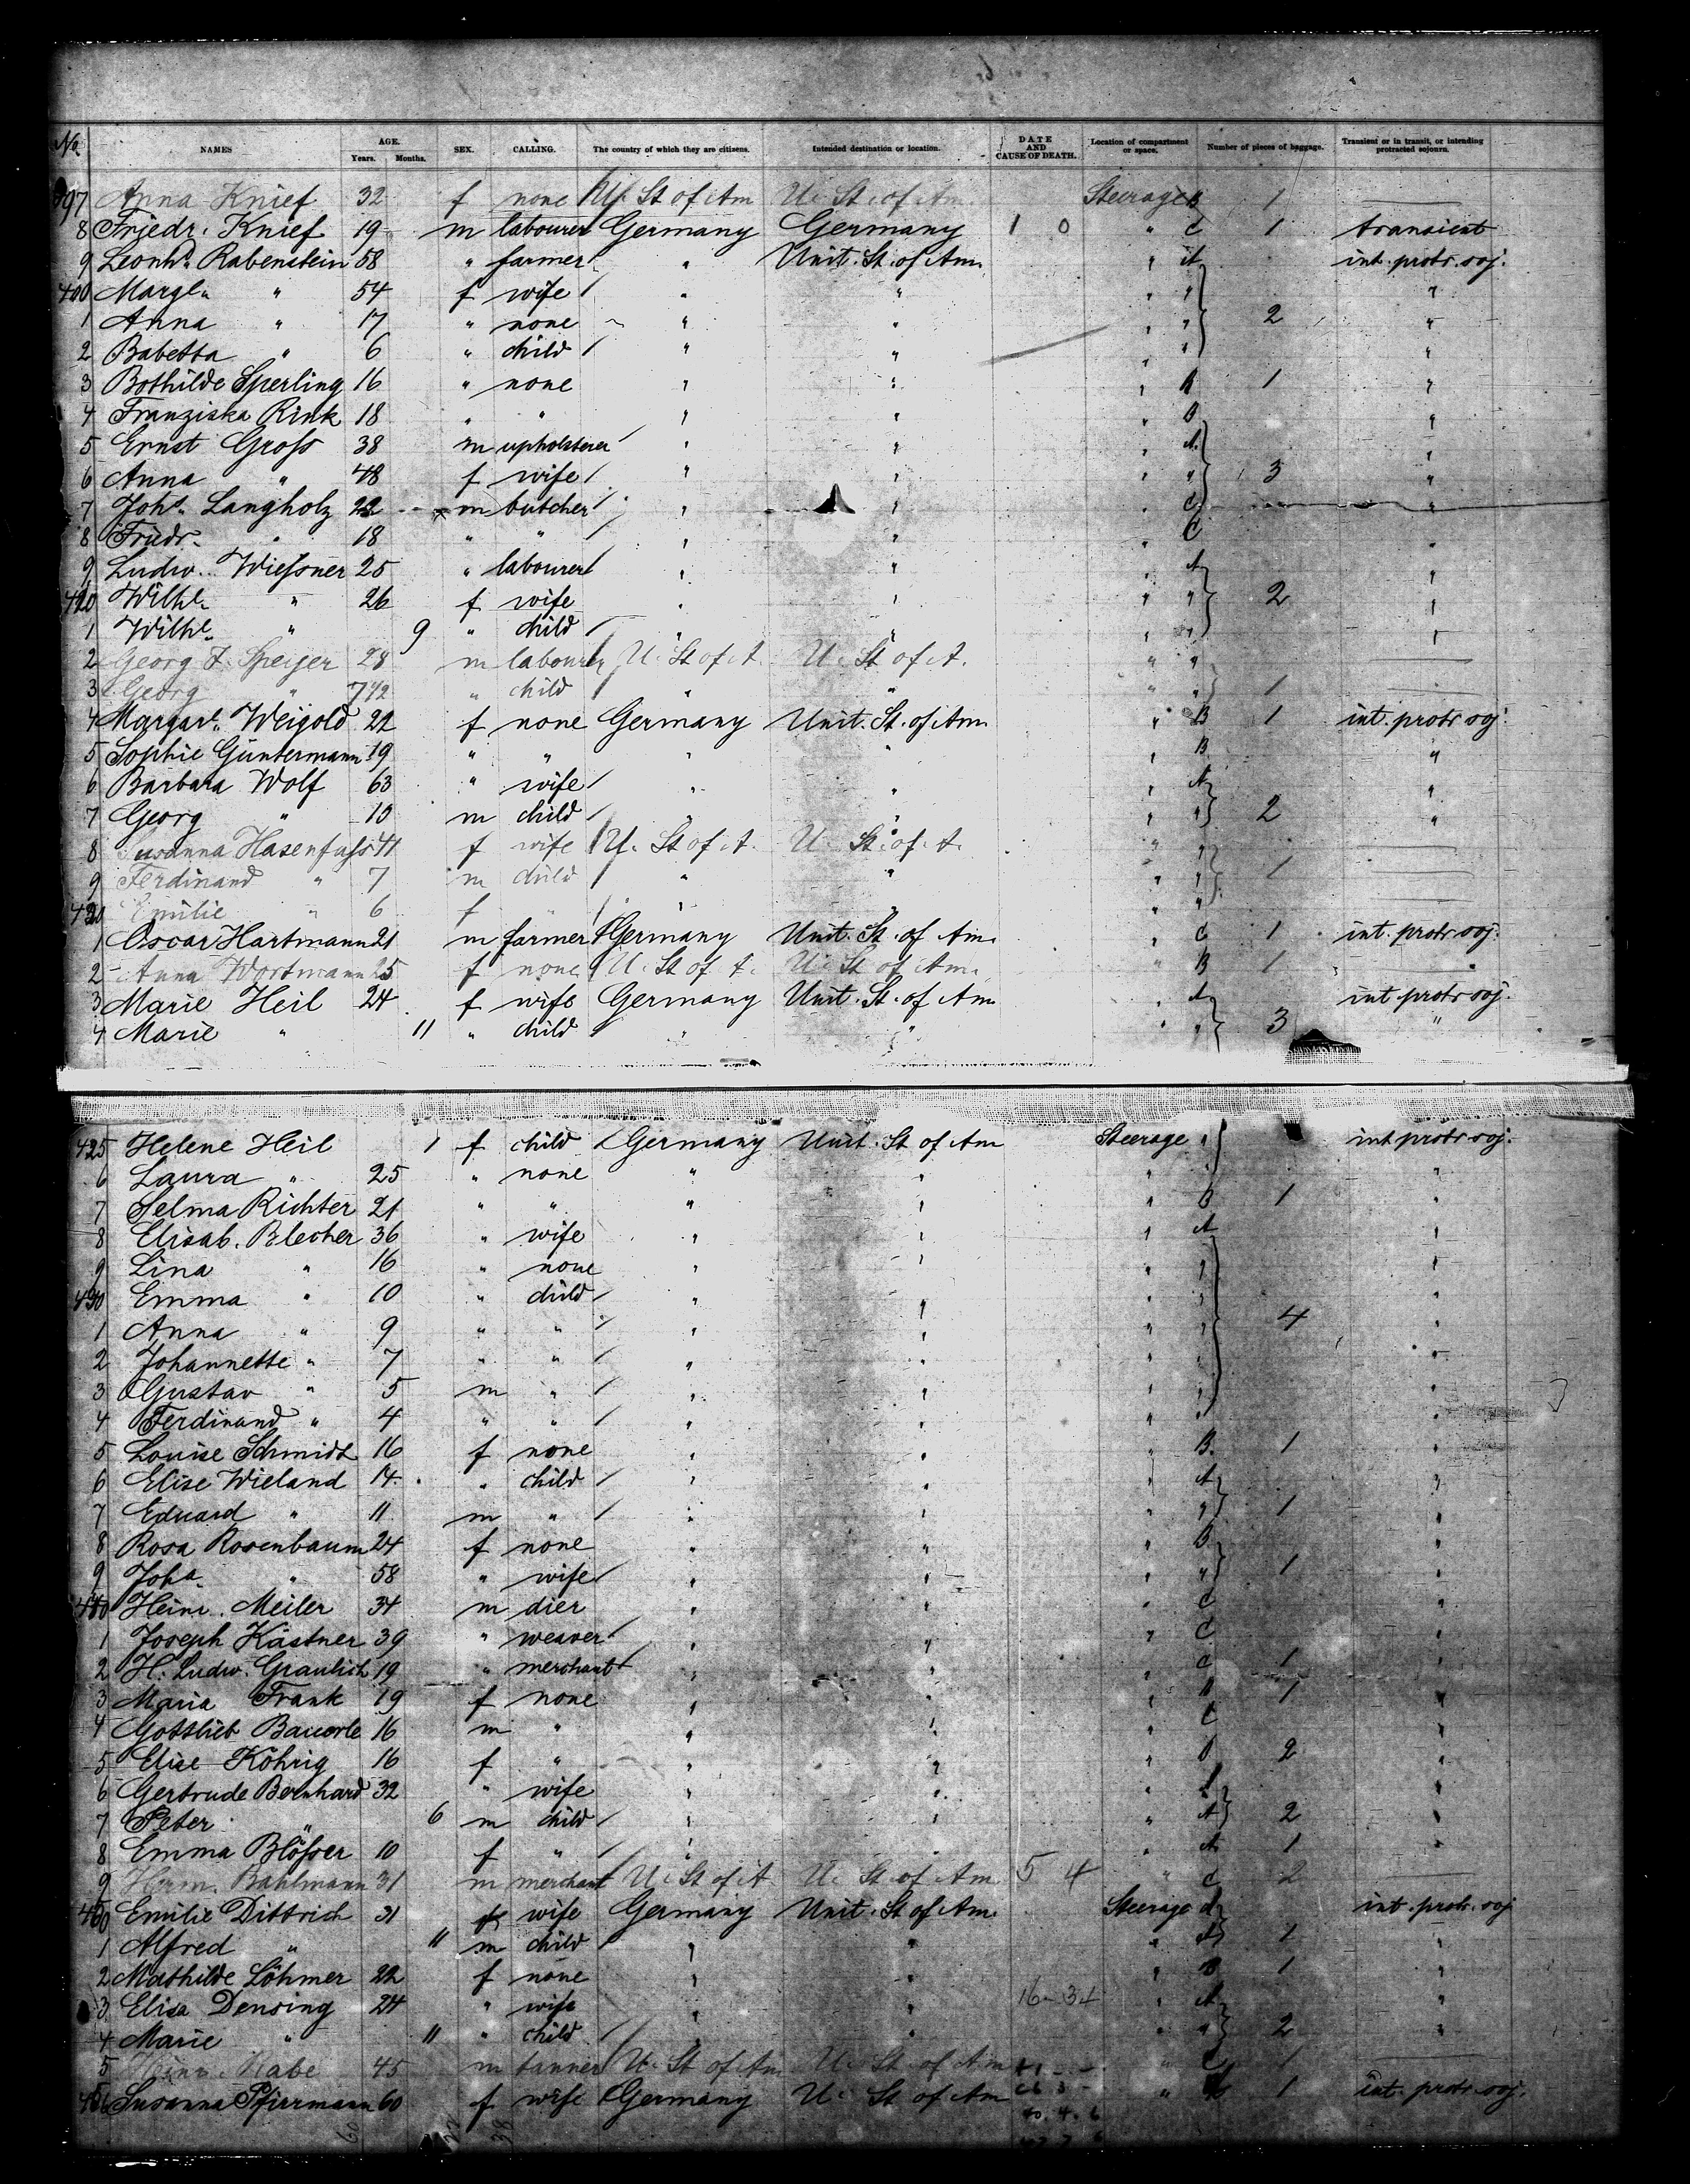 No. NAMES AGE. Years. Months. SEX. CALLING. The country of which they are citizens. Intended destination or location. DATE AND CAUSE OF DEATH. Location of compartment or space. Number of pieces of baggage. Transient or in transit, or intending protracted sojourn.
397 Anna Knief 32 f none U. St of Am U. St. of Am. Steerage B 1
8 Friedr. Knief 19 m labourer Germany Germany 1 0 " C 1 transient
9 Leonhd. Rabenstein 58 " farmer " Unit. St. of Am. " A int. protr. soj.
400 Margl. " 54 f wife " " " " "
1 Anna " 17 " none " " " " 2 "
2 Babetta " 6 " child " " " " "
3 Bothilde Sperling 16 " none " " " B 1 "
4 Franziska Rink 18 " " " " " B "
5 Ernst Groß 38 m upholsterer " " " A "
6 Anna " 48 f wife " " " " 3 "
7 Johs. Langholz 22 m butcher " " " C "
8 Friedr. " 18 " " " " " C "
9 Ludw. Wießner 25 " labourer " " " A "
410 Wilhe. " 26 f wife " " " " 2 "
1 Wilhe. " 9 " child " " " " "
2 Georg F. Speyer 28 m labourer U. St of A. U. St of A. " "
3 Georg " 7 1/2 " child " " " " 1
4 Margar. Weigold 22 f none Germany Unit. St. of Am. " B 1 int. protr. soj.
5 Sophie Güntermann 19 " " " " " B "
6 Barbara Wolf 63 " wife " " " A "
7 Georg " 10 m child " " " " 2 "
8 Susanna Hasenfuß 41 f wife U. St of A. U. St. of A. " "
9 Ferdinand " 7 m child " " " " 1
420 Emilie " 6 f " " " "
1 Oscar Hartmann 21 m farmer Germany Unit. St. of Am. " C 1 int. protr. soj.
2 Anna Wortmann 25 f none U. St of A. U. St of Am. " B 1
3 Marie Heil 24 f wife Germany Unit. St. of Am " A int protr soj.
4 Marie " 11 " child " " " " 3 "
425 Helene Heil 1 f child Germany Unit. St of Am Steerage " int protr soj.
6 Laura " 25 " none " " " "
7 Selma Richter 21 " " " " " B 1 "
8 Elisab. Blecher 36 " wife " " " A "
9 Lina " 16 " none " " " " "
430 Emma " 10 " child " " " " "
1 Anna " 9 " " " " " " 4 "
2 Johannette " 7 " " " " " " "
3 Gustav " 5 m " " " " " "
4 Ferdinand " 4 " " " " " "
5 Louise Schmidt 16 f none " " " B. 1 "
6 Elise Wieland 14 " child " " " A "
7 Eduard " 11 m " " " " " 1 "
8 Rosa Rosenbaum 24 f none " " " B "
9 Joha. " 58 " wife " " " " 1 "
440 Heinr. Meiler 34 m dier " " " C "
1 Joseph Kästner 39 " weaver " " " C "
2 H. Ludw. Graulich 19 " merchant " " " C 1 "
3 Maria Frank 19 f none " " " B 1 "
4 Gottlieb Bauerle 16 m " " " " C "
5 Elise Köhrig 16 f " " " " B 2 "
6 Gertrude Bernhard 32 " wife " " " A "
7 Peter " 6 m child " " " A 2 "
8 Emma Blößer 10 f " " " " A 1 "
9 Herm. Bahlmann 31 m merchant U. St of A U. St of Am. 5 4 " C 2
450 Emilie Dittrich 31 f wife Germany Unit. St of Am. Steerage A int. protr. soj
1 Alfred " 11 m child " " " A 1 "
2 Mathilde Löhmer 22 f none " " " B 1 "
3 Elisa Densing 24 " wife " " 16-34 " A "
4 Marie " 11 " child " " " " 2 "
5 Rabe 45 m tanner U. St of Am U. St. of Am " C 1
456 Susanna Pfirrmann 60 f wife Germany U. St of Am " 1 int. protr. soj.